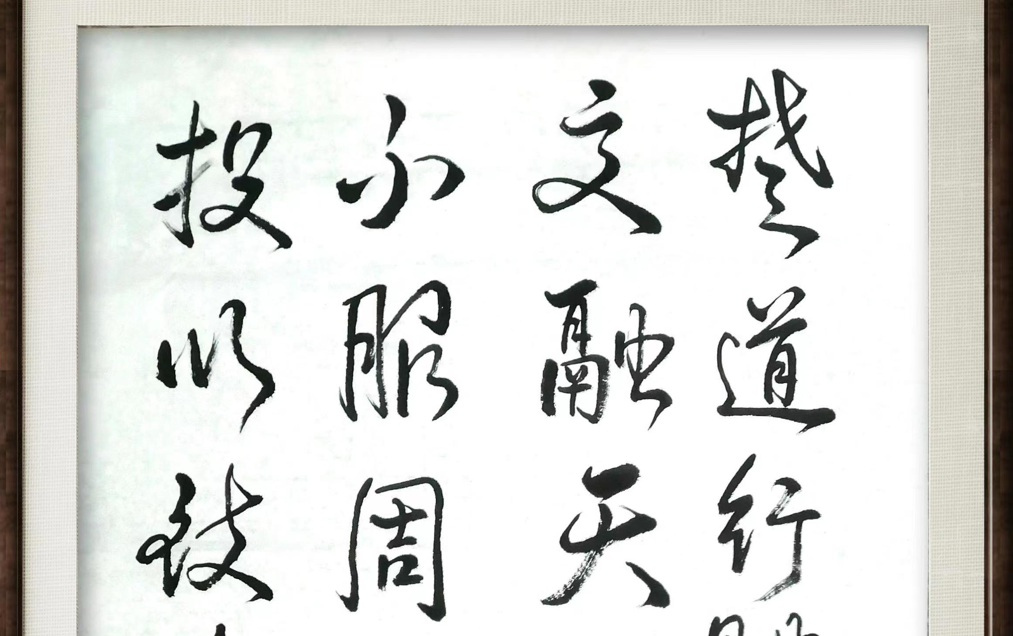 楚道行
文融天
不服周
投以致